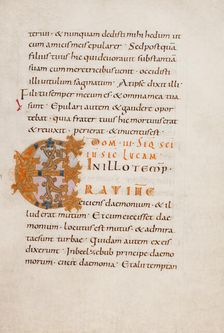 terivi · & nunquam dedisti mihi hedum ut
cum amicis meis epularer · Sed postquã
filius tuus hic qui devoravit substantiam
suam cum meretricibus venit · occidisti
illi vitulum saginatum · At ipse dixit illi
Fili tu semper mecum es & omnia mea tua
sunt · Epulari autem & gaudere opor
tebat · quia frater tuus hic mortuus erat
& revixit · perierat & inventus est ·
DOM · III · SEQ SCI
EUV SEC LUCAM
IN ILLO TEMP ·
ERAT IHC
eiciens daemonium · & il
lud erat mutum · Et cum eiecisset dae
monium · locutus est mutus · & admira
tae sunt turbae · Quidam autem ex eis
dixerunt · In beelzebub principe daemo
niorum · eiecit daemonia · Et alii temptan